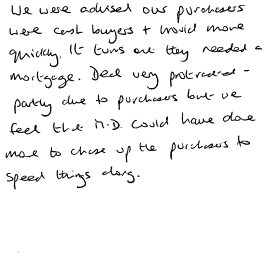 We were advised our purchasers
were cash buyers + would move
quickly. It turns out they needed a
mortgage. Deal very protracted -
partly due to purchasers but we
feel that M.D. could have done
more to chase up the purchasers to
speed things along.